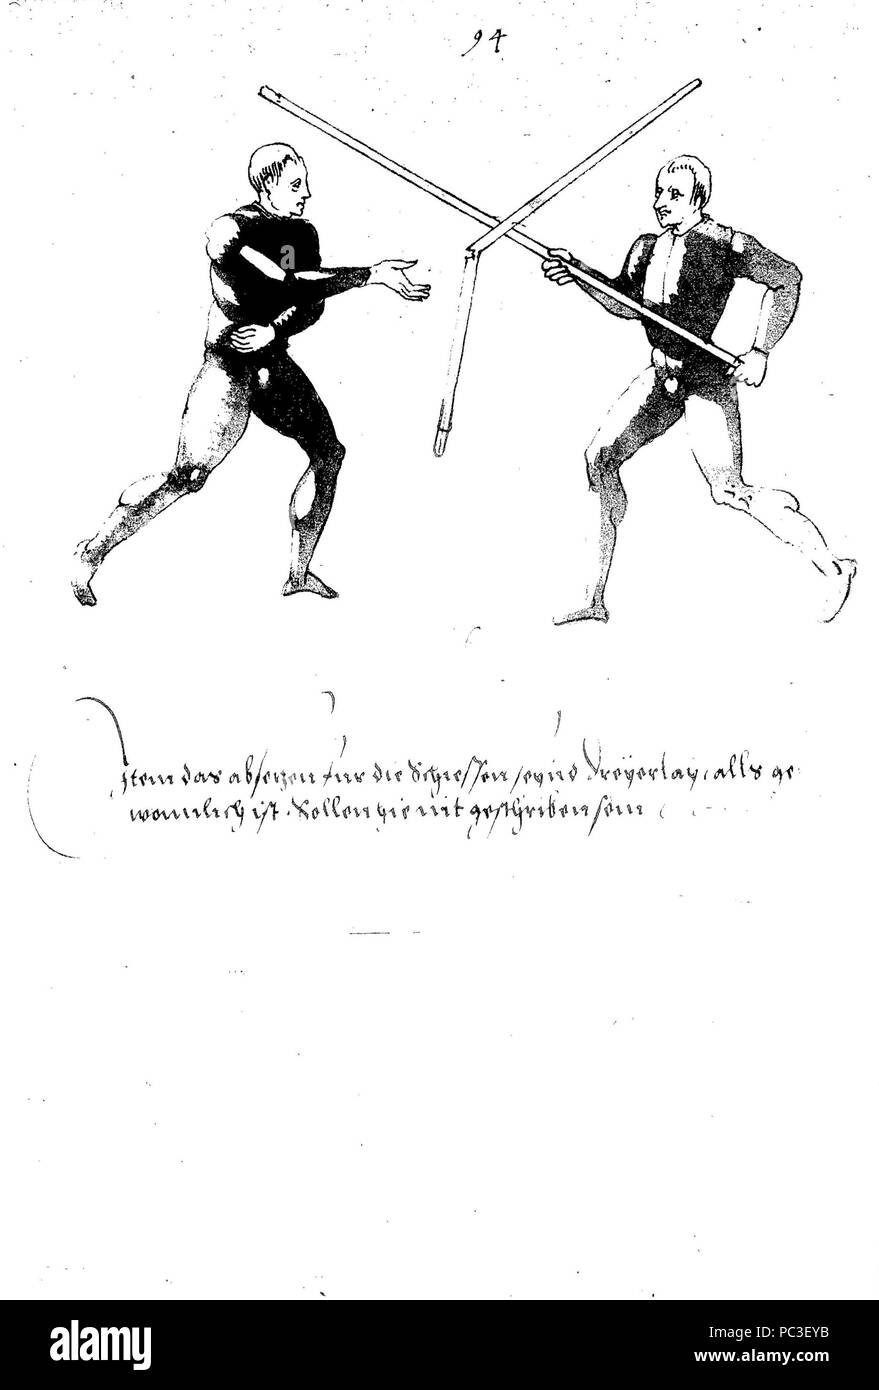 94
Item das absetzen fur die Schiessen seynd Dreyerlay, alls ge
wonnlich ist. Sollen hie mit geschriben sein
a
alamy
Image ID: PC3EYB
www.alamy.com